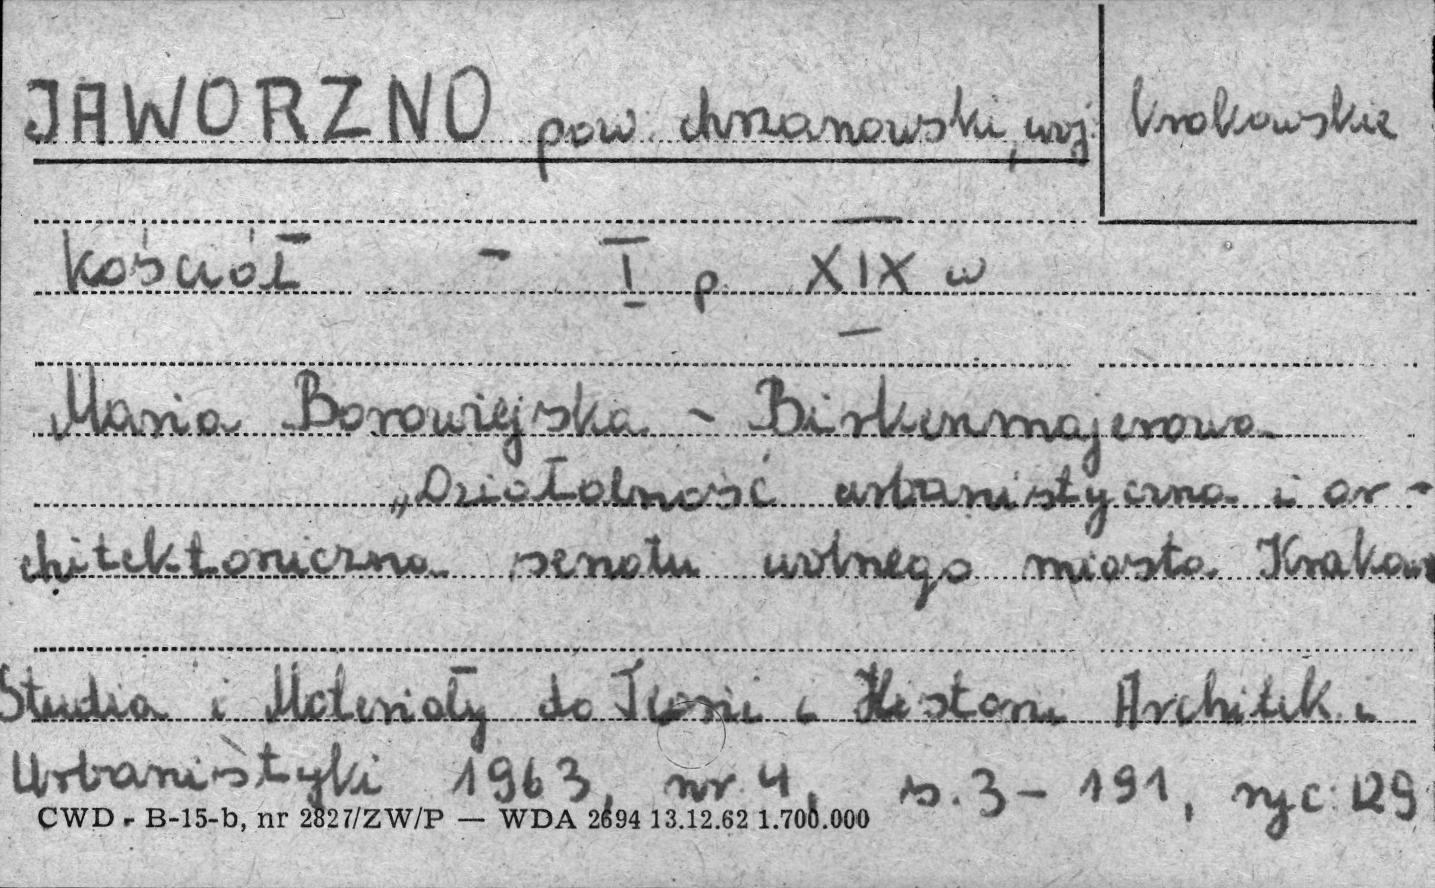 JAWORZNO pow. chrzanowski, woj. krakowskie
kościół - I p XIX w
Maria Borowiejska - Birkenmajerowa
„Działalność urbanistyczna i ar-
chitektoniczna senatu wolnego miasta Krakowa
Studia i Materiały do Teorii i Historii Architek. i
Urbanistyki 1963, nr 4, s. 3 - 191, ryc 129
CWD - B-15-b, nr 2827/ZW/P — WDA 2694 13.12.62 1.700.000